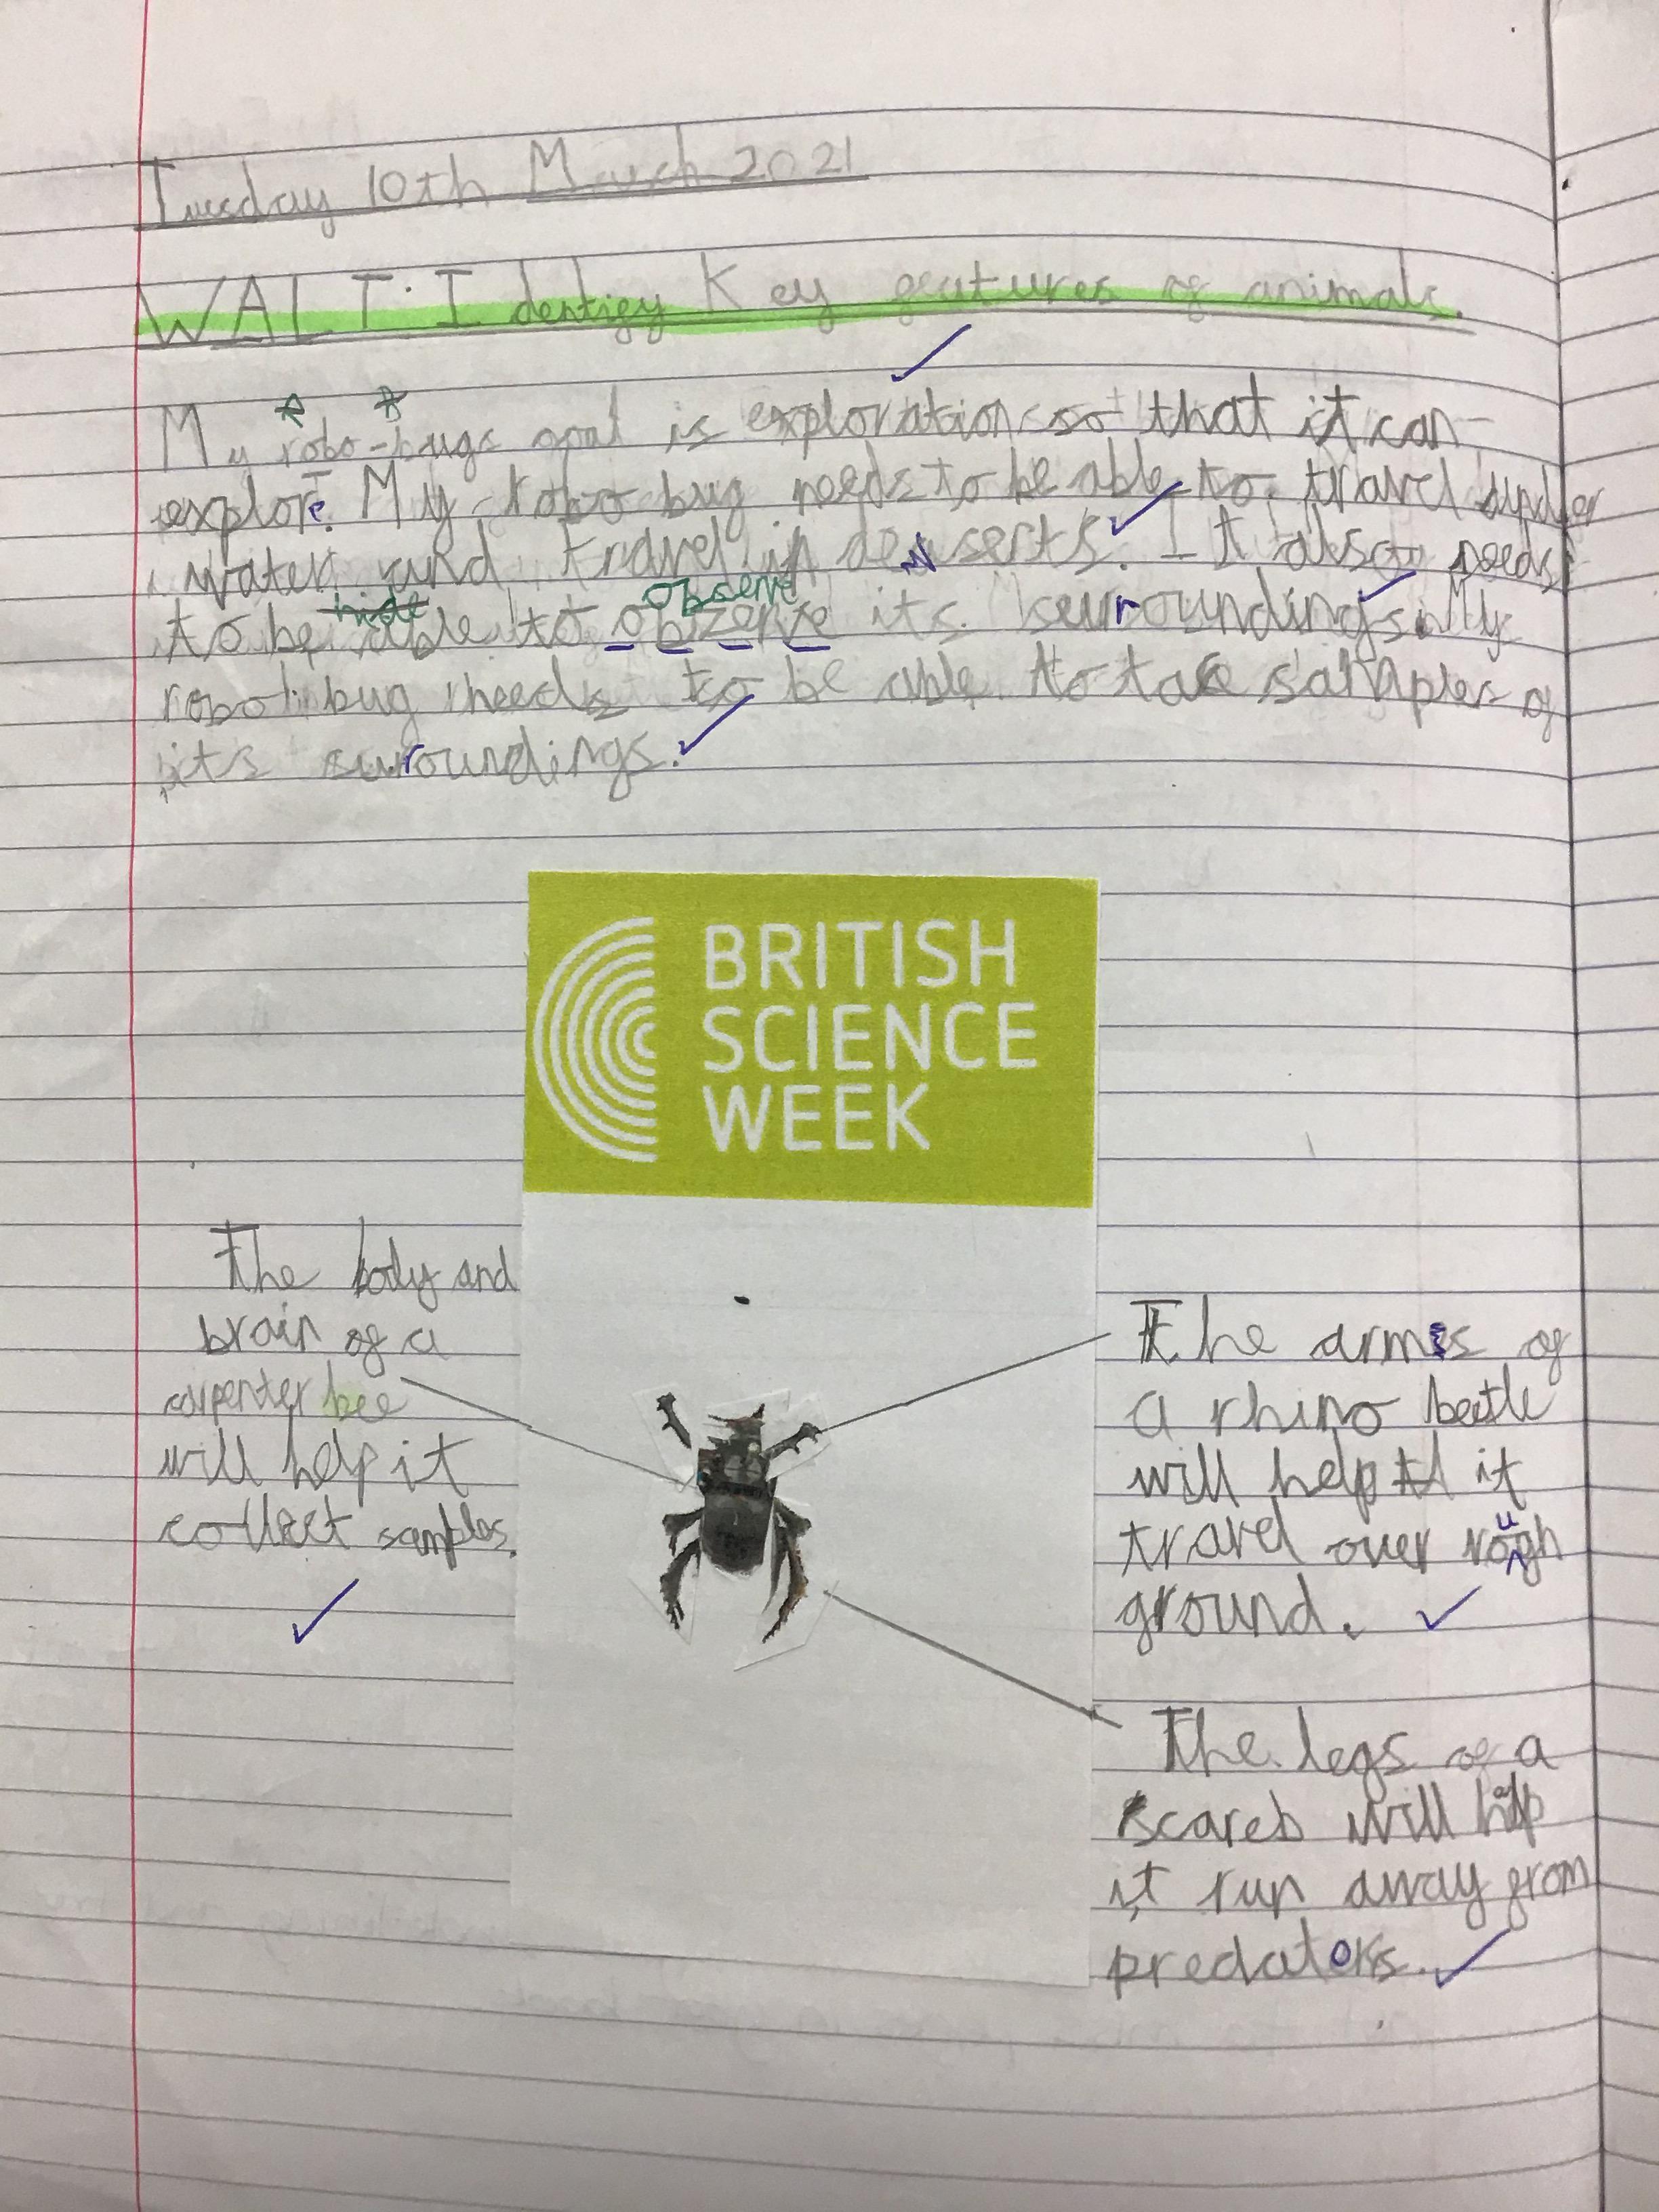 Tuesday 10th March 2021
WALT: Identify Key features of animals.
My robo-bugs goal is exploration so that it can
explore. My robo bug needs to be able to travel under
water and travel in deserts. It also needs
hide observe
to be able to obzerve its surroundings. My
robot bug needs to be able to take samples of
its surroundings.
BRITISH
SCIENCE
WEEK
The body and
brain of a
carpenter bee
will help it
collect samples.
The arms of
a rhino beetle
will help it
travel over rough
ground.
The legs of a
scareb will help
it run away from
predators.